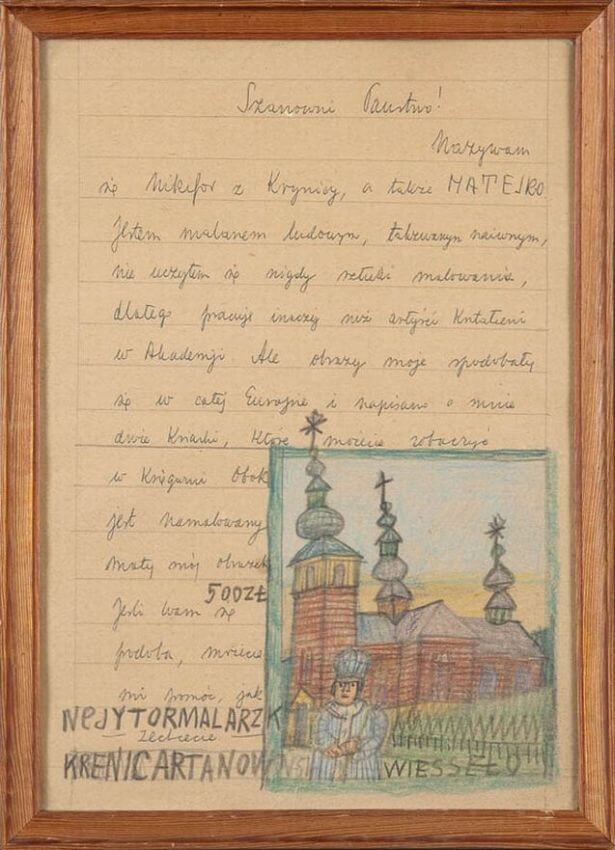 Szanowni Państwo!
Nazywam
się Nikifor z Krynicy, a także MATEJKO
Jestem malarzem ludowym, takzwanym naiwnym,
nie uczyłem się nigdy sztuki malowania,
dlatego pracuję inaczej niż artyści Kształceni
w Akademji. Ale obrazy moje spodobały
się w całej Europie i napisano o mnie
dwie Książki, Które możecie zobaczyć
w Księgarni Obok
jest namalowany
mały mój obrazek
500ZŁ
Jeśli Wam się
podoba, możecie
mi pomóc, jak
NEJYTORMALARZK
zechcecie
KRENICARTANOW
WIESSEŁO